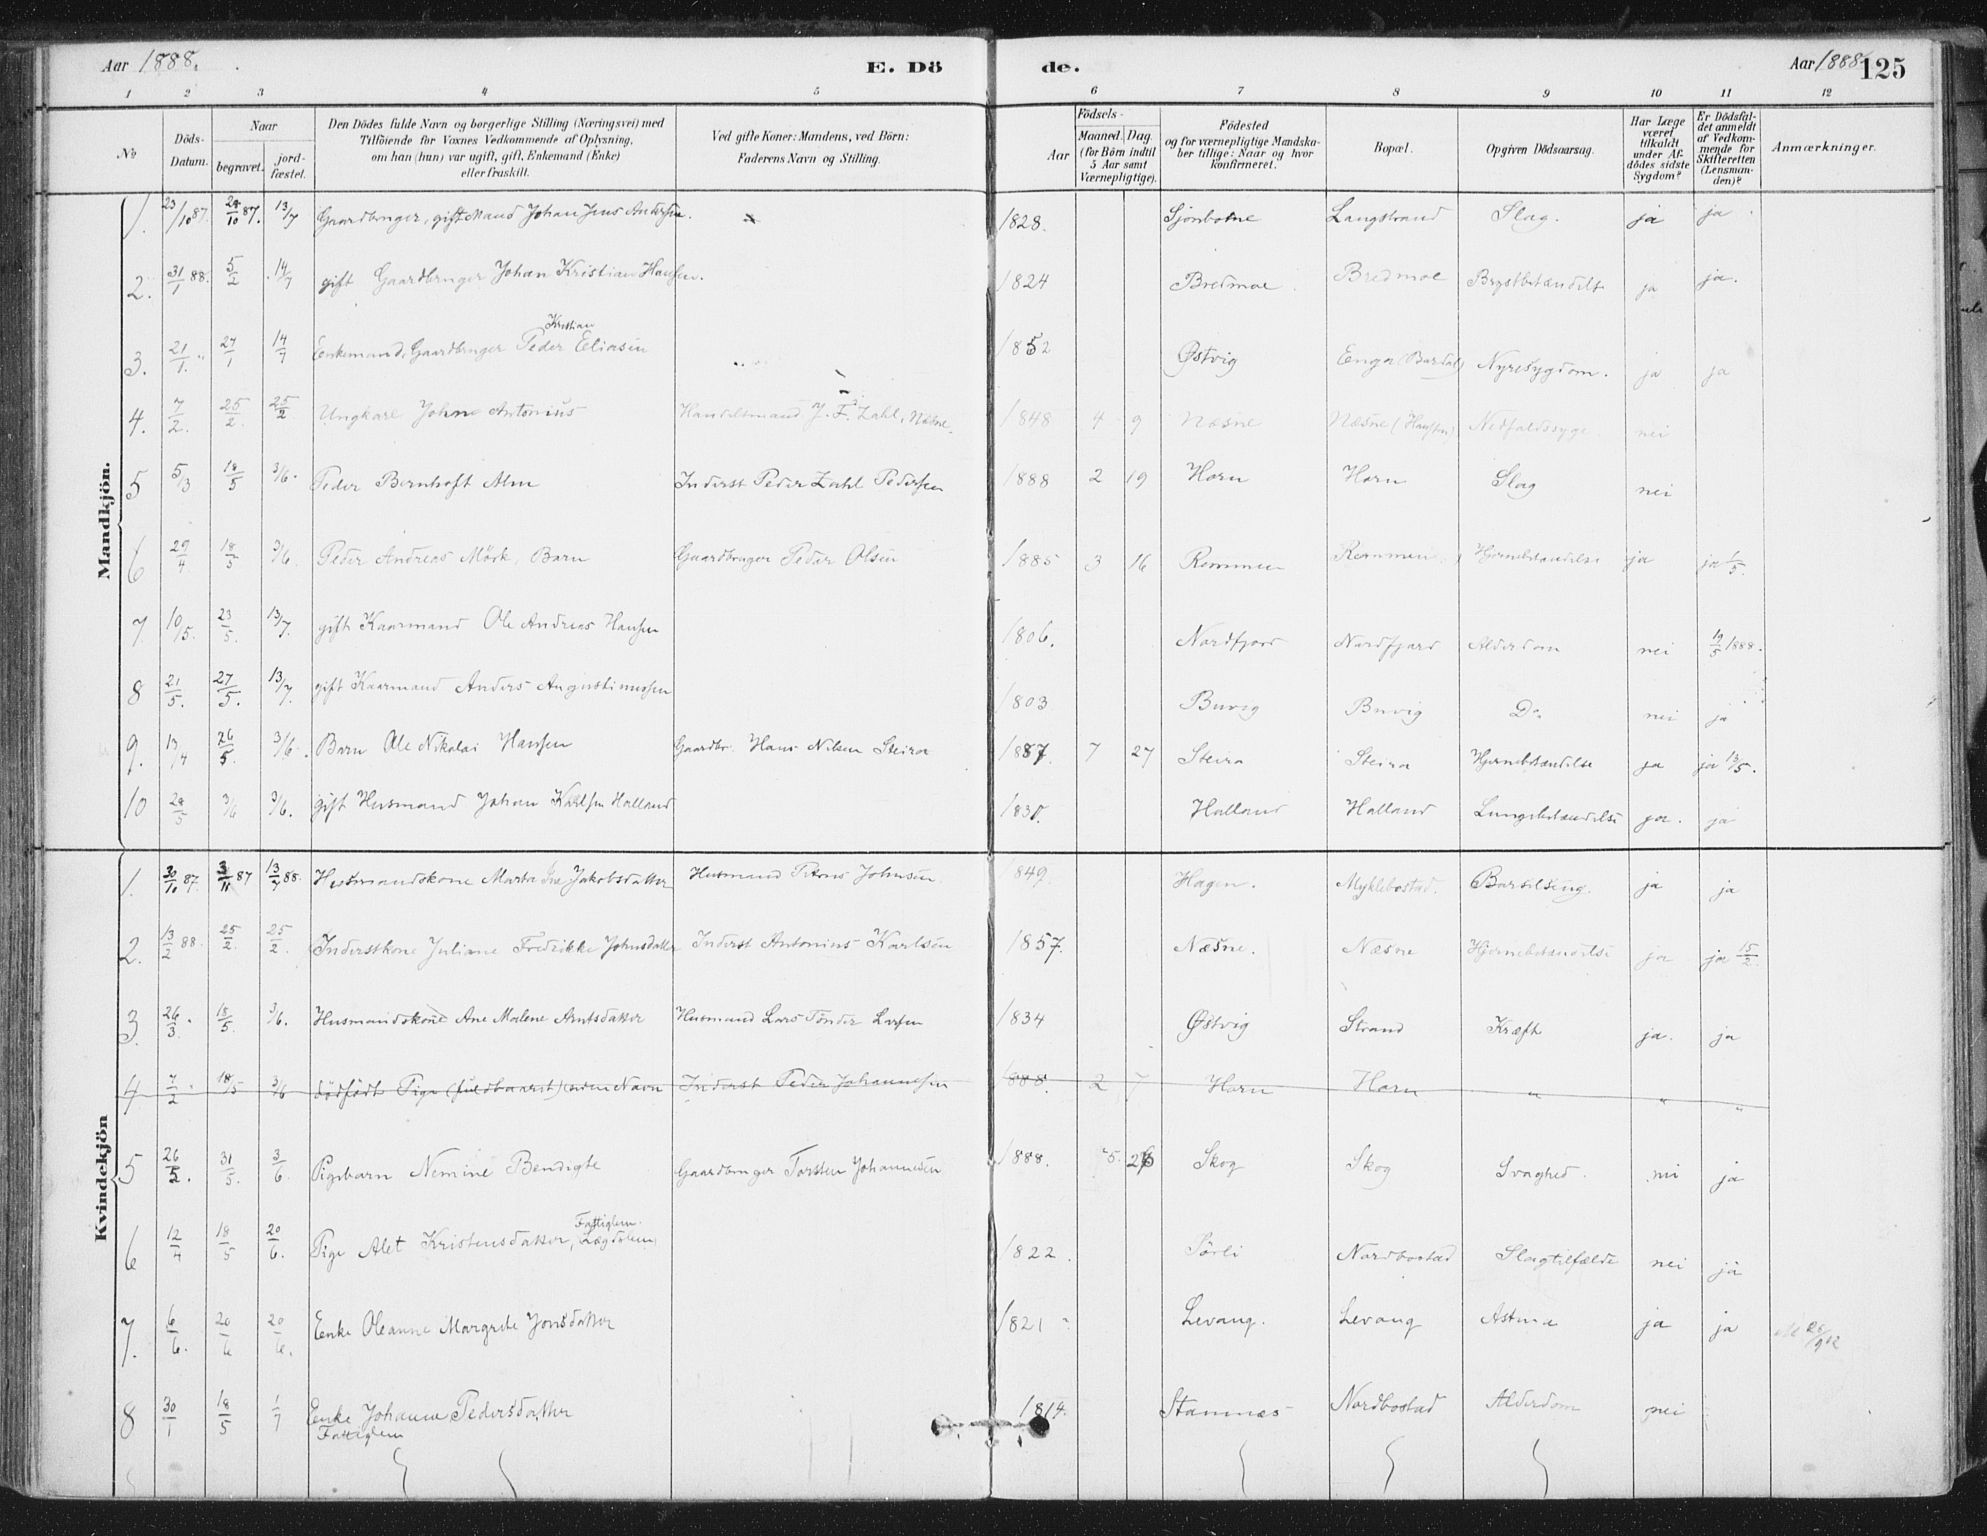 Aar 1888. E. Dö de. Aar 1888 125
1 2 3 4 5 6 7 8 9 10 11 12
No
Döds-Datum.
Naar
begravet.
jordfæstet.
Den Dödes fulde Navn og borgerlige Stilling (Næringsvei) med
Tilföiende for Voxnes Vedkommende af Oplysning,
om han (hun) var ugift, gift, Enkemand (Enke)
eller fraskilt.
Ved gifte Koner: Mandens, ved Börn:
Faderens Navn og Stilling.
Födsels-
Aar
Maaned. Dag.
(for Börn indtil
5 Aar samt
Værnepligtige).
Födested
og for værnepligtige Mandskaber tillige: Naar og hvor
konfirmeret.
Bopæl.
Opgiven Dödsaarsag.
Har Læge
været
tilkaldt
under Afdödes sidste
Sygdom?
Er Dödsfaldet anmeldt
af Vedkommende for
Skifteretten
(Lensmanden)?
Anmærkninger.
Mandkjön.
1. 23/10 87. 29/10 87. 13/7 Gaardbruger, gift Mand Johan Jens Andersen. 1828. Sjonbotne Langstrand Slag. ja ja
2. 31/1 88. 5/2 14/7 gift Gaardbruger Johan Kristian Hansen. 1824 Bredmoe Bredmoe Brystbetændelse ja ja.
3. 21/1 " 27/1 14/7 Enkemand, Gaardbruger Peder Kristian Eliasen 1852 Østvig Enga (Bardal) Nyresygdom. ja ja
4. 7/2. 25/2 25/2 Ungkarl Johne Antonius Handelsmand J. F. Zahl, Næsne. 1848 4 9 Næsne Næsne Nedfaldssyge nei
5 5/3 18/5 3/6. Peder Bernhoft Alm Inderst Peder Zahl Pedersen 1888 2 19 Horn Horn Slag nei
6 29/4. 18/5 3/6. Peder Andreas Mörk, Barn Gaardbruger Peder Olsen 1885 3 16 Remmen Remmen Hjernebetændelse ja ja 1/5.
7 10/5. 23/5. 13/7. gift Kaarmand Ole Andreas Hansen 1806. Nordfjord Nordfjord Alderdom nei 19/5 1888.
8 21/5. 27/5. 13/7. gift Kaarmand Anders Augustinussen 1803 Buvig Buvig Do nei ja
9. 13/4 26/5. 3/6. Barn Ole Nikolai Hansen Gaardbr. Hans Nilsen Steiro 1887. 7 27 Steiro Steiro Hjernebetændelse ja ja 13/5.
10 29/5 3/6 3/6. gift Husmand Johan Karlsen Halland 1830. Halland Halland Lungebetændelse ja. ja
Kvindekjön
1. 30/10 87. 3/11 87 13/7 88. Husmandskone Marta Ine Jakobsdatter Husmand Johnsen. 1849. Hagen. Myklebostad. Barselseng. ja ja
2. 13/2 88. 25/2. 25/2. Inderstkone Juliane Fredrikke Johnsdatter Inderst Antonius Karlsen 1857. Næsne. Næsne Hjernebetændelse ja ja 15/2.
3. 26/3. " 18/5. 3/6. Husmandskone Ane Malene Arntsdatter Husmand Lars Tönder Larsen 1834 Østvig Strand Kræft ja. ja
4 7/2 " 18/5 3/6 dödfödt Pige (fuldbaaret) uden Navn Inderst Peder Johannesen 1888. 2 7 Horn Horn " " "
5 26/5. 31/5. 3/6 Pigebarn Nemine Bendigte Gaardbruger Torsten Johannesen 1888. 5. 26 Skog Skog Svaghed. nei ja
6 12/4 18/5 20/6. Pige Alet Kristensdatter, Fattiglem. Lægdslem, 1822. Sörli Nordbostad Slagtilfælde nei ja
7. 6/6. 20/6 20/6. Enke Oleanne Margrete Jonsdatter 1821 Levang. Levang Astma ja ja
8 30/1 18/5 1/7 Enke Johanne Pedersdatter 1814. Stamnæs Nordbostad Alderdom nei
Fattiglem